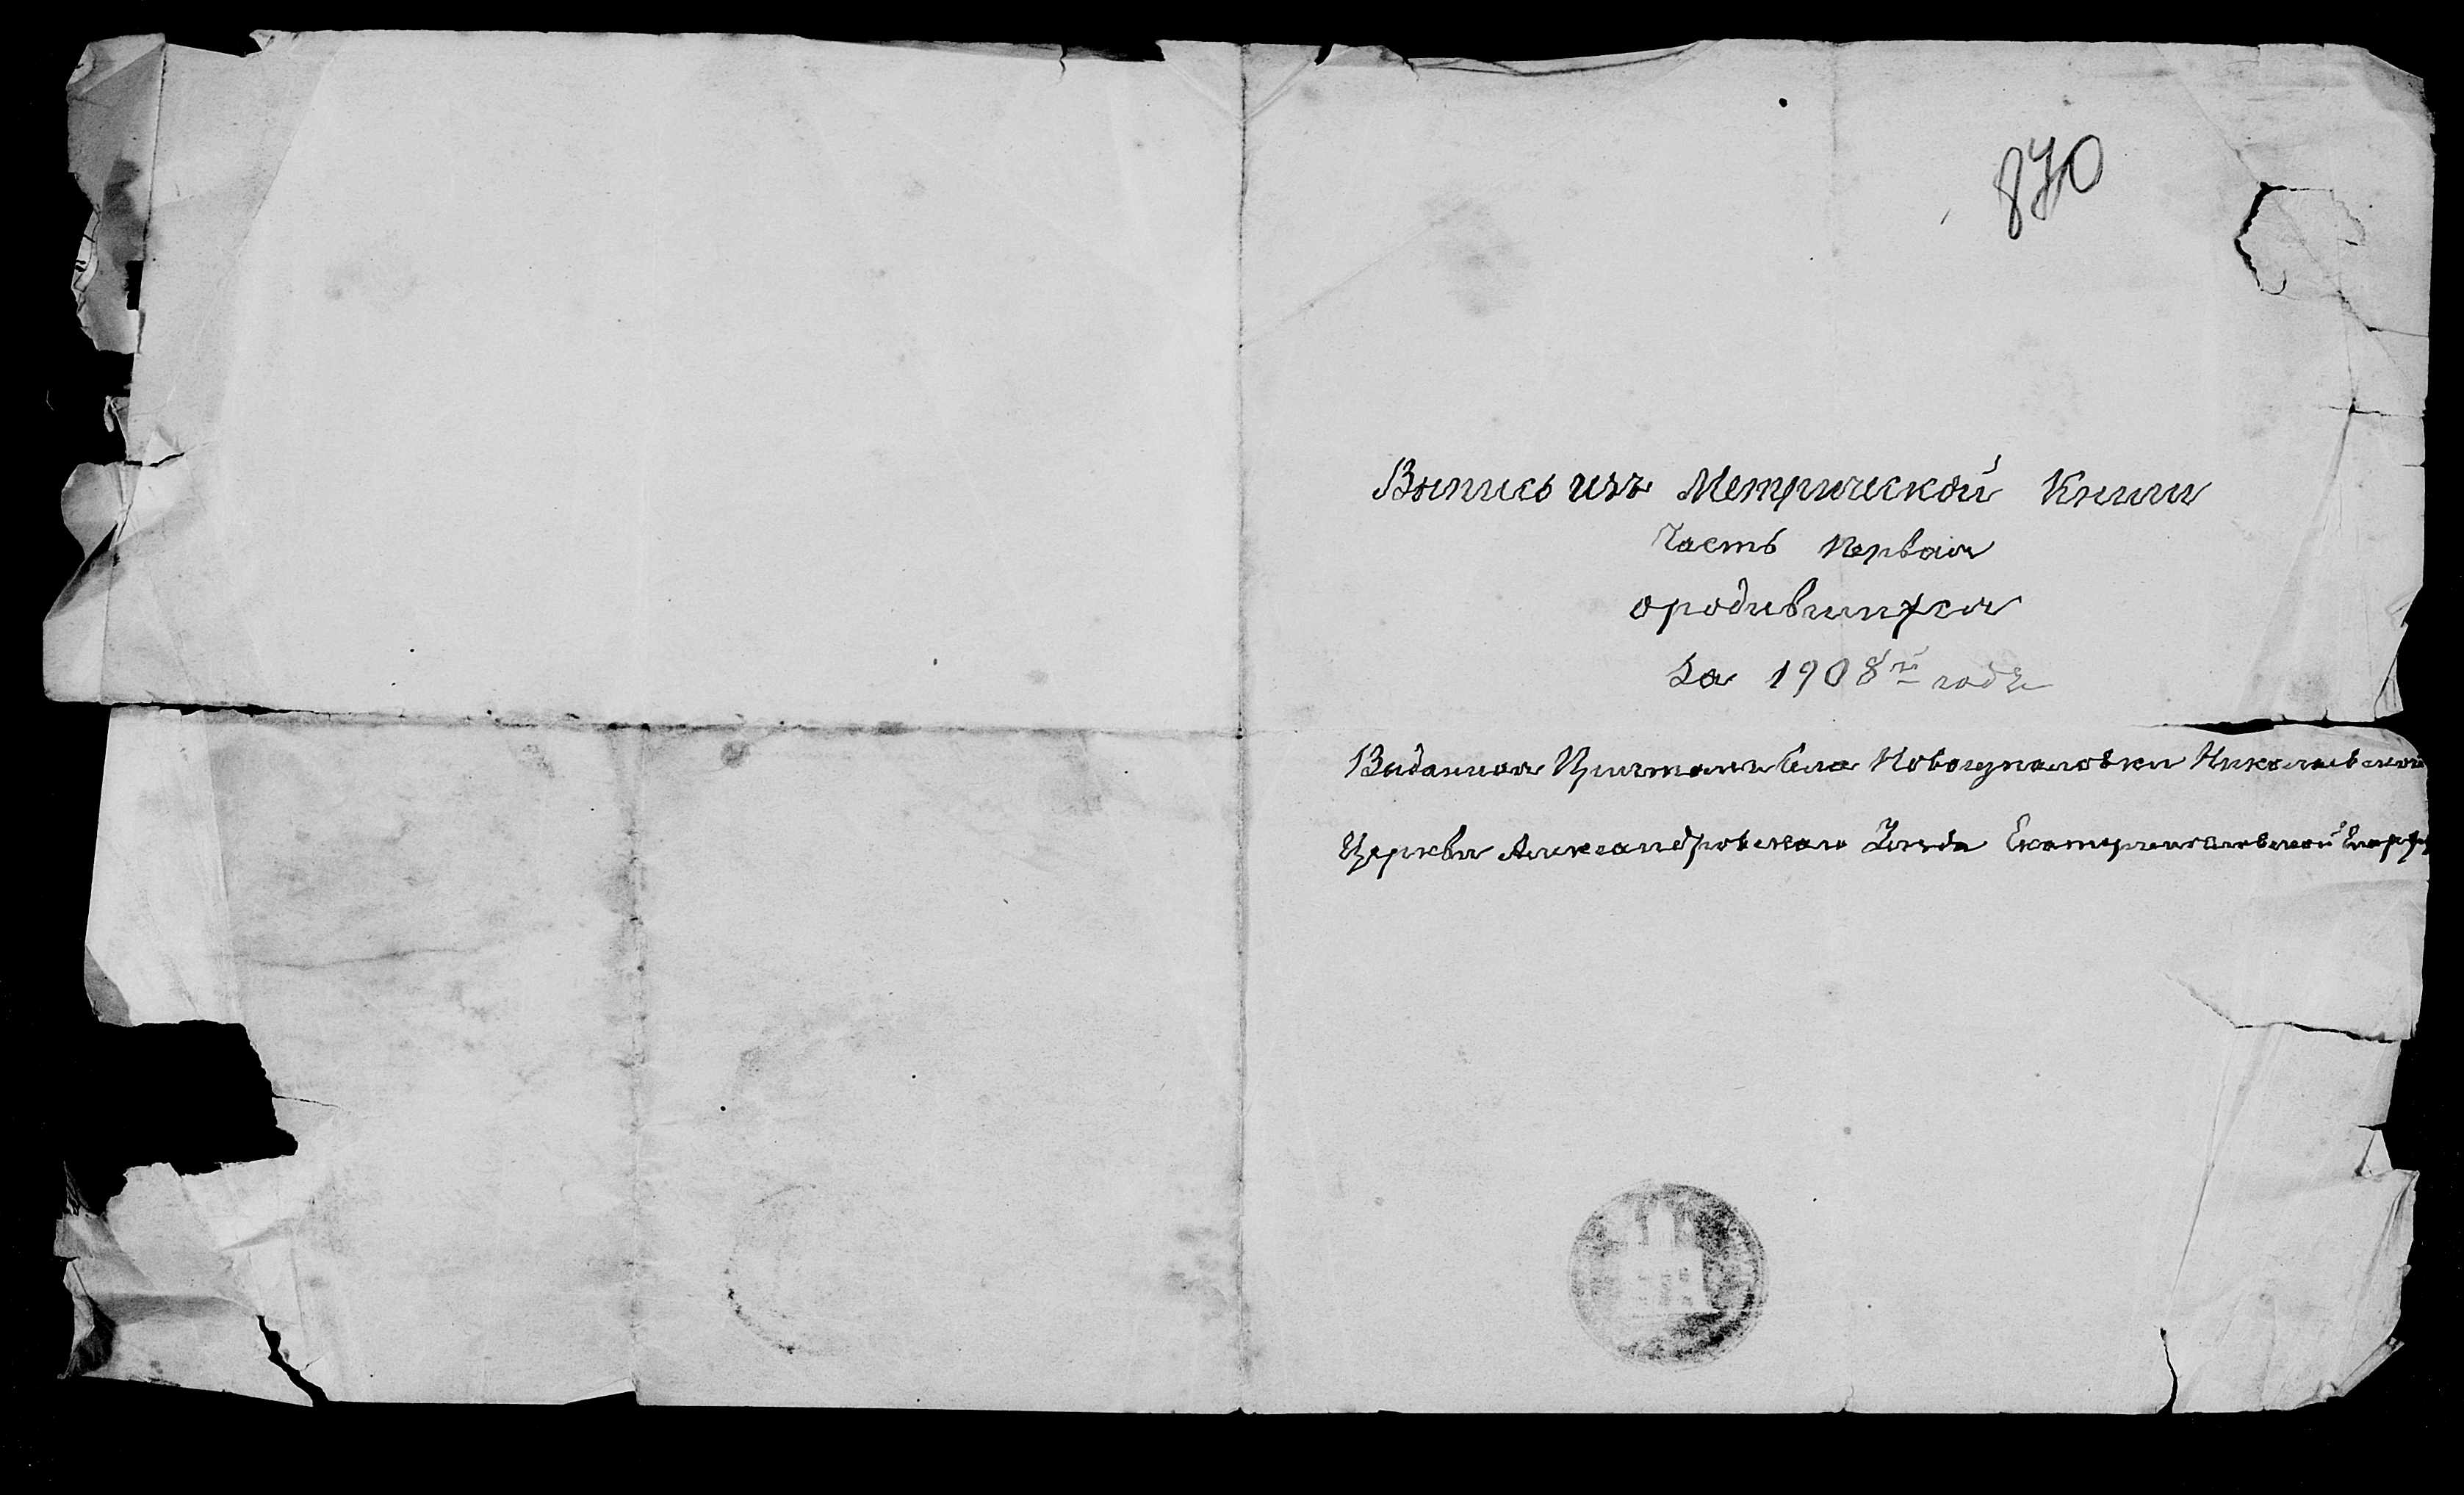 870
Выпись изъ Метрической Книги
Часть Первая
ородившихся
За 1908й годъ
Виданная Причтомъ Села Новогупаловки Николаевской
Церкви Александровскаго Уезда Екатеринославской Епарх